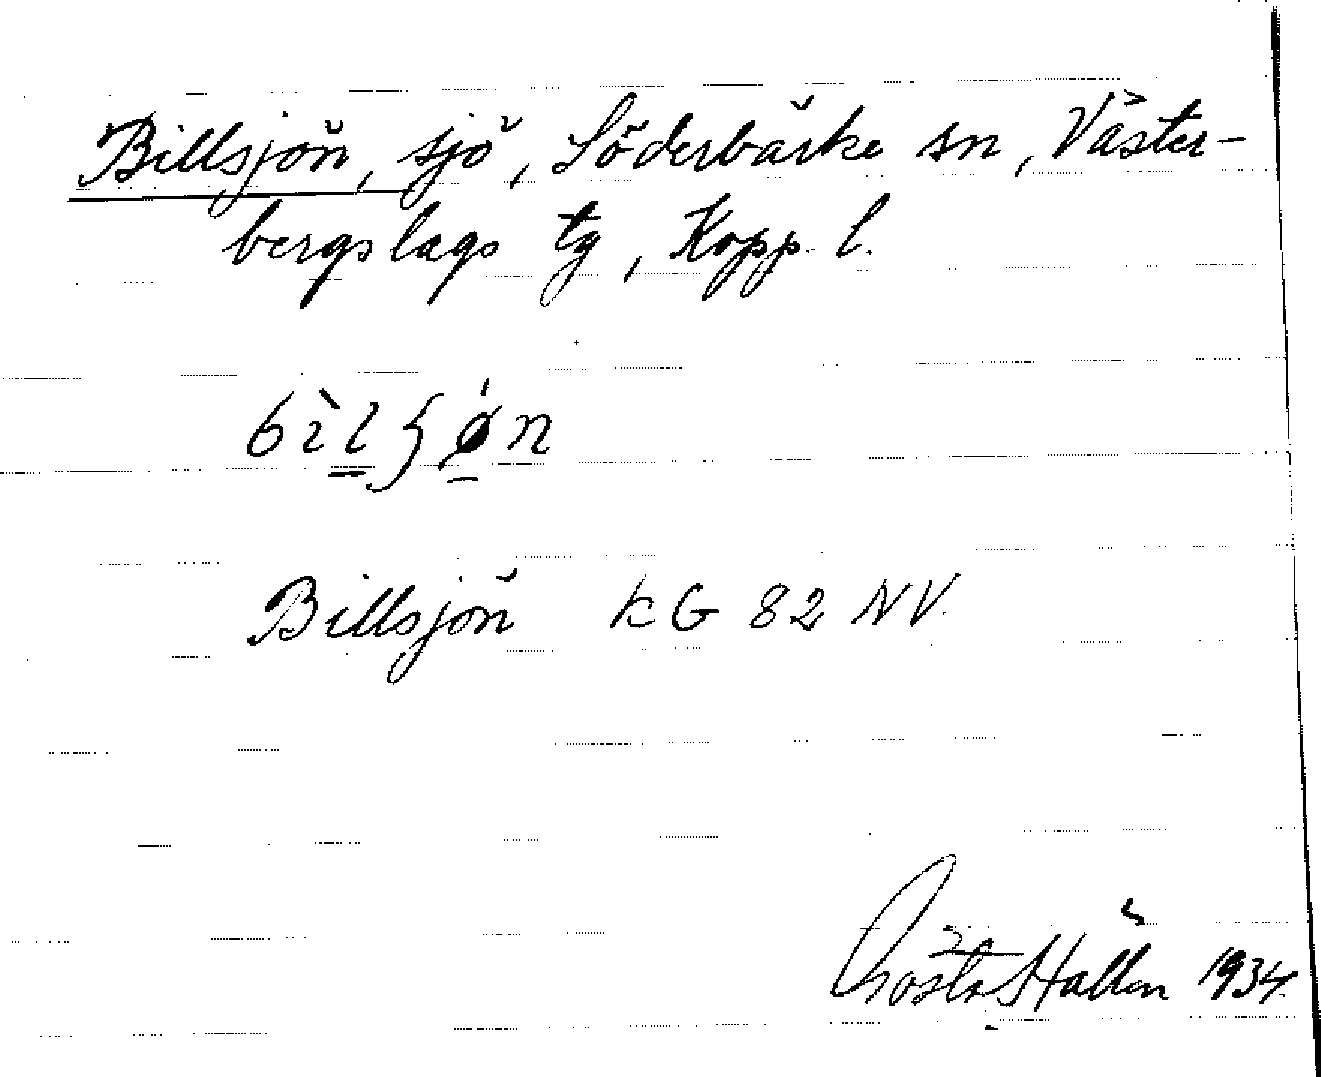 Billsjön, sjö, Söderbärke sn, Väster-
bergslags tg, Kopp. l.
Billsjön KG 82 NV.
Gösta Hallén 1934.